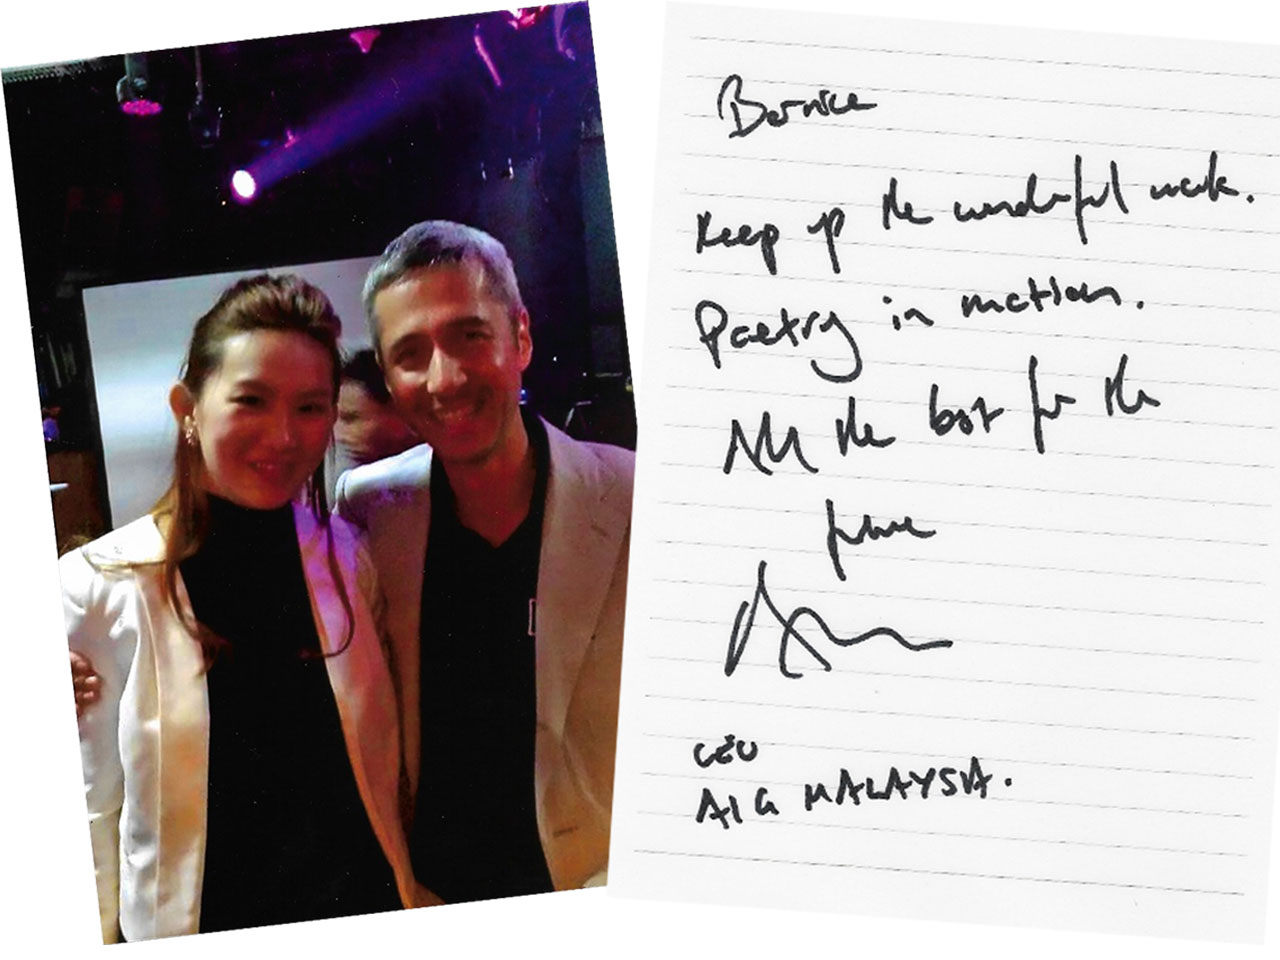 Bernice
Keep up the wonderful work.
Poetry in motion.
All the best for the
future
CEO
AIG MALAYSIA.